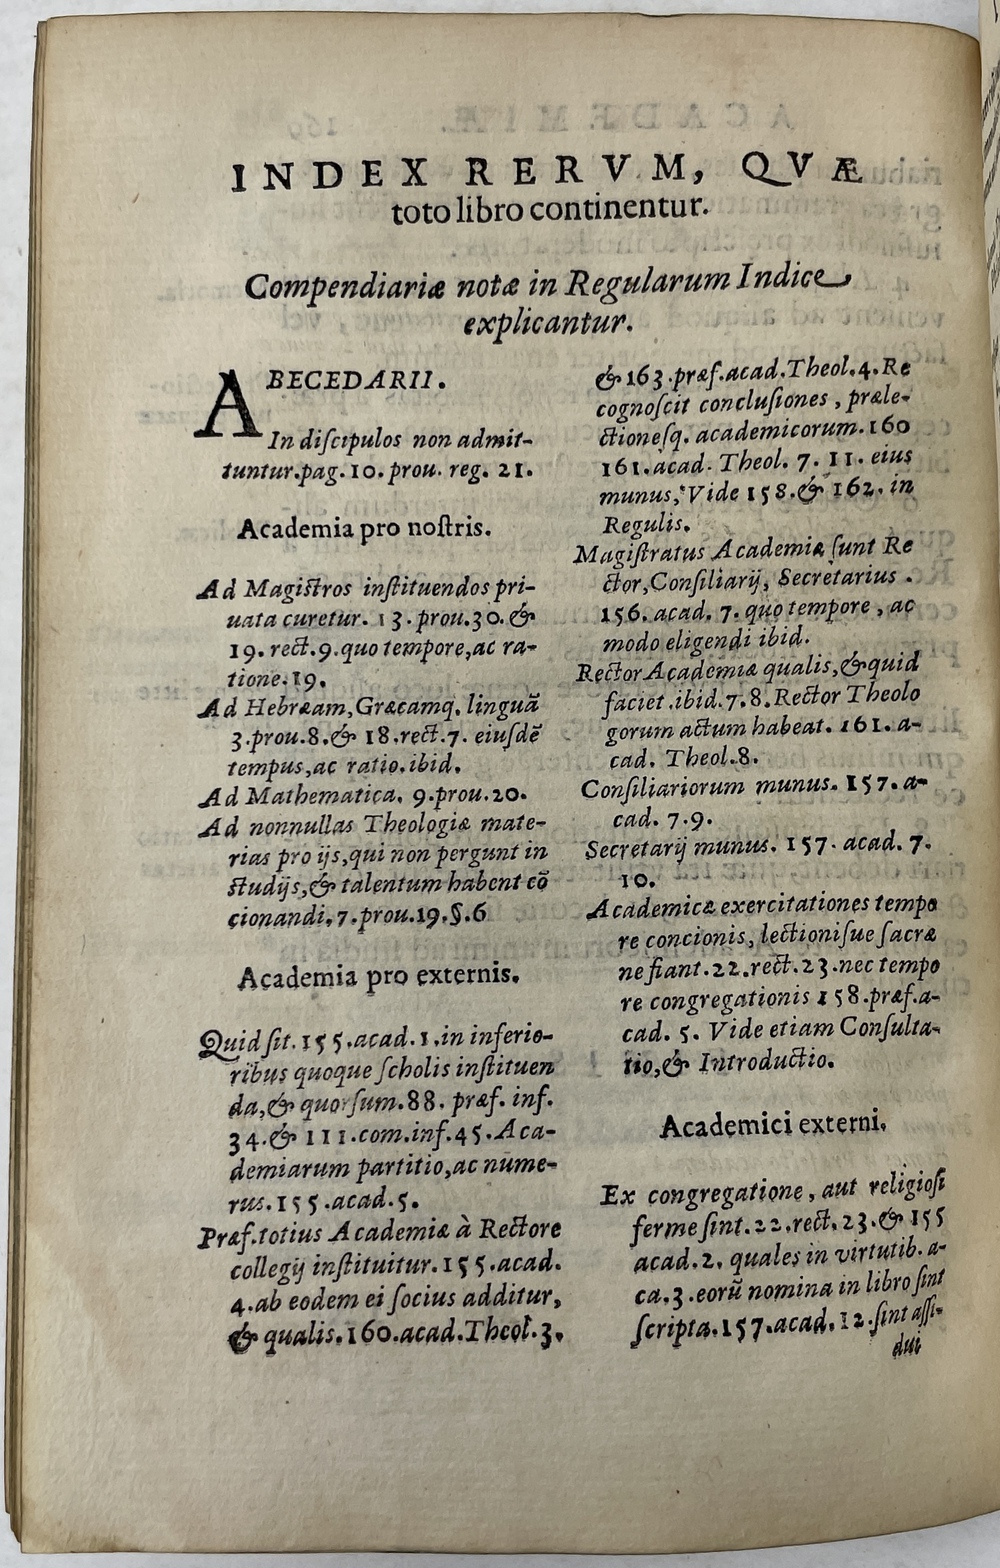 INDEX RERVM, QVÆ
toto libro continentur.
Compendiariæ notæ in Regularum Indice
explicantur.
ABECEDARII.
In diſcipulos non admit-
tuntur.pag.10.prou.reg.21.
Academia pro noſtris.
Ad Magiſtros inſtituendos pri-
uata curetur. 13.prou.30.&
19.rect.9.quo tempore,ac ra-
tione.19.
Ad Hebræam,Græcamq. linguã
3.prou.8.& 18.rect.7. eiuſdẽ
tempus,ac ratio.ibid.
Ad Mathematica. 9.prou.20.
Ad nonnullas Theologiæ mate-
rias pro ijs,qui non pergunt in
ſtudijs,& talentum habent cõ
cionandi.7.prou.19.§.6
Academia pro externis.
Quid ſit.155.acad.1.in inferio-
ribus quoque ſcholis inſtituen
da,& quorſum.88. præf. inf.
34.& 111.com.inf.45.Aca-
demiarum partitio,ac nume-
rus.155.acad.5.
Præf.totius Academiæ à Rectore
collegij inſtituitur.155.acad.
4.ab eodem ei ſocius additur,
& qualis.160.acad.Theol.3.
& 163.præf.acad.Theol.4.Re
cognoſcit concluſiones, præle-
ctioneſq. academicorum.160
161.acad. Theol. 7. 11. eius
munus, Vide 158.& 162. in
Regulis.
Magiſtratus Academiæ ſunt Re
ctor,Conſiliarij, Secretarius.
156. acad. 7. quo tempore, ac
modo eligendi ibid.
Rector Academiæ qualis,& quid
faciet.ibid.7.8.Rector Theolo
gorum actum habeat. 161. a-
cad. Theol.8.
Conſiliariorum munus. 157.a-
cad. 7.9.
Secretarij munus. 157. acad. 7.
10.
Academicæ exercitationes tempo
re concionis, lectioniſue ſacræ
ne fiant.22.rect.23.nec tempo
re congregationis 158.præf.a-
cad. 5. Vide etiam Conſulta-
tio,& Introductio.
Academici externi.
Ex congregatione, aut religioſi
ferme ſint.22.rect.23.& 155
acad.2. quales in virtutib. a-
ca.3.eorũ nomina in libro ſint
ſcripta.157.acad.12.ſint aſſi-
dui